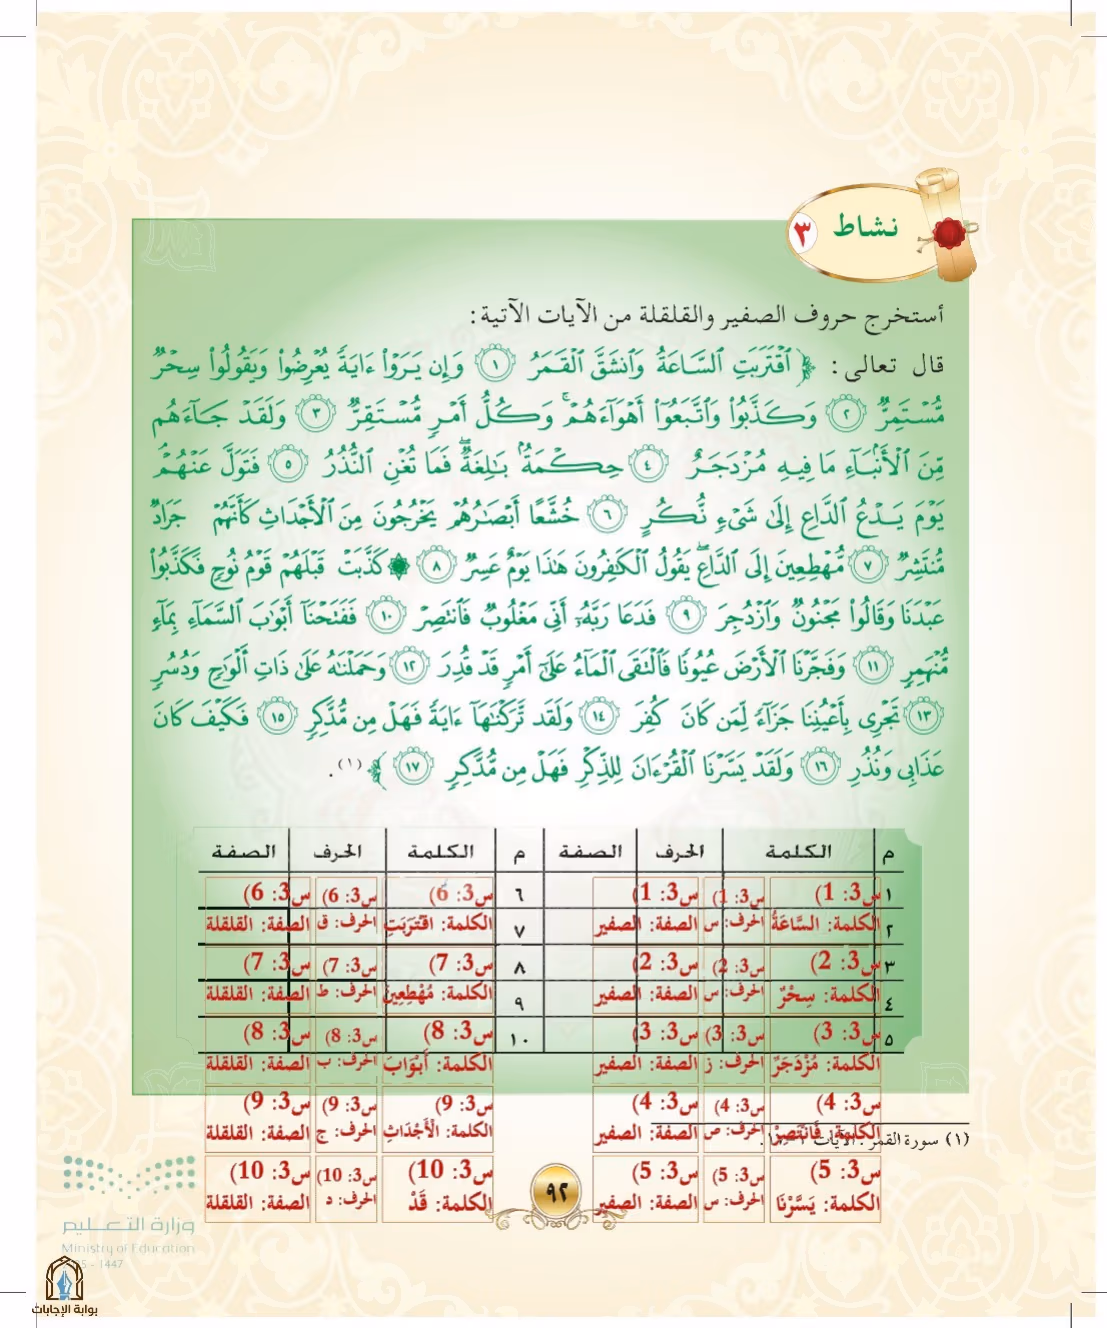 نشاط ٣
أستخرج حروف الصفير والقلقلة من الآيات الآتية:
قال تعالى: ﴿ ٱقْتَرَبَتِ ٱلسَّاعَةُ وَٱنشَقَّ ٱلْقَمَرُ ١ وَإِن يَرَوْا۟ ءَايَةً يُعْرِضُوا۟ وَيَقُولُوا۟ سِحْرٌ
مُّسْتَمِرٌّ ٢ وَكَذَّبُوا۟ وَٱتَّبَعُوٓا۟ أَهْوَآءَهُمْ ۚ وَكُلُّ أَمْرٍ مُّسْتَقِرٌّ ٣ وَلَقَدْ جَآءَهُم
مِّنَ ٱلْأَنۢبَآءِ مَا فِيهِ مُزْدَجَرٌ ٤ حِكْمَةٌۢ بَـٰلِغَةٌ ۖ فَمَا تُغْنِ ٱلنُّذُرُ ٥ فَتَوَلَّ عَنْهُمْ ۘ
يَوْمَ يَدْعُ ٱلدَّاعِ إِلَىٰ شَىْءٍ نُّكُرٍ ٦ خُشَّعًا أَبْصَـٰرُهُمْ يَخْرُجُونَ مِنَ ٱلْأَجْدَاثِ كَأَنَّهُمْ جَرَادٌ
مُّنتَشِرٌ ٧ مُّهْطِعِينَ إِلَى ٱلدَّاعِ ۖ يَقُولُ ٱلْكَـٰفِرُونَ هَـٰذَا يَوْمٌ عَسِرٌ ٨ ۞ كَذَّبَتْ قَبْلَهُمْ قَوْمُ نُوحٍ فَكَذَّبُوا۟
عَبْدَنَا وَقَالُوا۟ مَجْنُونٌ وَٱزْدُجِرَ ٩ فَدَعَا رَبَّهُۥٓ أَنِّى مَغْلُوبٌ فَٱنتَصِرْ ١٠ فَفَتَحْنَآ أَبْوَٰبَ ٱلسَّمَآءِ بِمَآءٍ
مُّنْهَمِرٍ ١١ وَفَجَّرْنَا ٱلْأَرْضَ عُيُونًا فَٱلْتَقَى ٱلْمَآءُ عَلَىٰٓ أَمْرٍ قَدْ قُدِرَ ١٢ وَحَمَلْنَـٰهُ عَلَىٰ ذَاتِ أَلْوَٰحٍ وَدُسُرٍ
١٣ تَجْرِى بِأَعْيُنِنَا جَزَآءً لِّمَن كَانَ كُفِرَ ١٤ وَلَقَد تَّرَكْنَـٰهَآ ءَايَةً فَهَلْ مِن مُّدَّكِرٍ ١٥ فَكَيْفَ كَانَ
عَذَابِى وَنُذُرِ ١٦ وَلَقَدْ يَسَّرْنَا ٱلْقُرْءَانَ لِلذِّكْرِ فَهَلْ مِن مُّدَّكِرٍ ١٧ ﴾ (١).
م الكلمة الحرف الصفة م الكلمة الحرف الصفة
١ س3: 1) س3: 1) س3: 1) ٦ س3: 6) س3: 6) س3: 6)
٢ الكلمة: السَّاعَةُ الحرف: س الصفة: الصفير ٧ الكلمة: اقْتَرَبَتِ الحرف: ق الصفة: القلقلة
٣ س3: 2) س3: 2) س3: 2) ٨ س3: 7) س3: 7) س3: 7)
٤ الكلمة: سِحْرٌ الحرف: س الصفة: الصفير ٩ الكلمة: مُهْطِعِينَ الحرف: ط الصفة: القلقلة
٥ س3: 3) س3: 3) س3: 3) ١٠ س3: 8) س3: 8) س3: 8)
الكلمة: مُزْدَجَرٌ الحرف: ز الصفة: الصفير الكلمة: أَبْوَابَ الحرف: ب الصفة: القلقلة
س3: 4) س3: 4) س3: 4) س3: 9) س3: 9) س3: 9)
الكلمة: فَانْتَصِرْ الحرف: ص الصفة: الصفير الكلمة: الْأَجْدَاثِ الحرف: ج الصفة: القلقلة
(١) سورة القمر: الآيات
س3: 5) س3: 5) س3: 5) س3: 10) س3: 10) س3: 10)
الكلمة: يَسَّرْنَا الحرف: س الصفة: الصفير الكلمة: قَدْ الحرف: د الصفة: القلقلة
٩٢
وزارة التعليم
Ministry of Education
1447
بوابة الإجابات